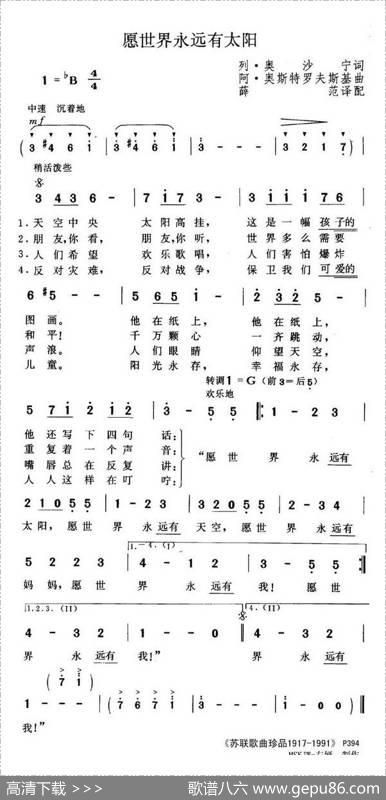 愿世界永远有太阳
列·奥沙宁词
1=♭B 4/4 阿·奥斯特罗夫斯基曲
薛范译配
中速 沉着地
mf
( 3 #4 6 1 | 3 #4 6 1 | 3 - 1 - | 3 3 2 1 7 )
稍活泼些
3 4 3 6 - | 7 1 7 3 - | 3 3 1 1 1 7 6
1.天空中央 太阳高挂, 这是一幅孩子的
2.朋友,你看, 朋友,你听, 世界多么需要
3.人们希望 欢乐歌唱, 人们害怕爆炸
4.反对灾难, 反对战争, 保卫我们可爱的
6 #5 - - | 5 6 5 1 - | 2 3 2 5 -
图画。 他在纸上, 他在纸上,
和平! 千万颗心 一齐跳动,
声浪。 人们眼睛 仰望天空,
儿童。 阳光永存, 幸福永存,
转调1=G(前3=后5)
欢乐地
5 7 1 2 1 2 | 3 - 5 5 :‖ 1 - - 2 | 3 - - 5 5
他还写下四句话:
重复着一个声音:
嘴唇总在反复讲:
人人这样在叮咛:
“愿世界永远有
2 1 0 5 5 | 2 - - 3 | 3 2 0 5 5 | 1 - 2 - 3 4
太阳,愿世界永远有天空,愿世界永远有
1.-4.(I)
5 2 2 3 | 4 - - 2 | 1 - - 3 2 | 3 - 5 5 :‖
妈妈,愿世界永远有我!愿世
1.2.3.(II) 4.(II)
4 - 3 2 | 1 - - 0 :‖ 4 - 3 2
界永远有我!” 界永远有
( 7 1 ) ( 7 1 )
1 - - - | 1 - 7 6 7 1 | 3 - 1 - | 1 - - - ‖
我!”
《苏联歌曲珍品1917-1991》 P394
高清下载 → 歌谱八六 www.gepu86.com